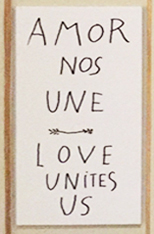 AMOR
NOS
UNE
LOVE
UNiTES
US